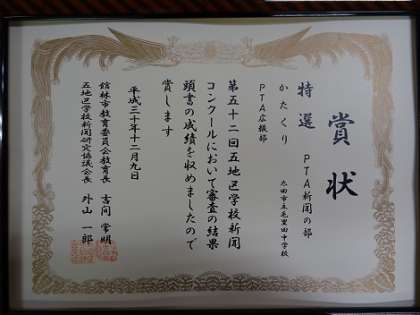 賞状
特選 PTA新聞の部
かたくり 太田市立毛里田中学校
PTA広報部
第五十二回五地区学校新聞
コンクールにおいて審査の結果
頭書の成績を収めましたので
賞します
平成三十年十二月九日
館林市教育委員会教育長 吉間 常明
五地区学校新聞研究協議会長 外山 一郎